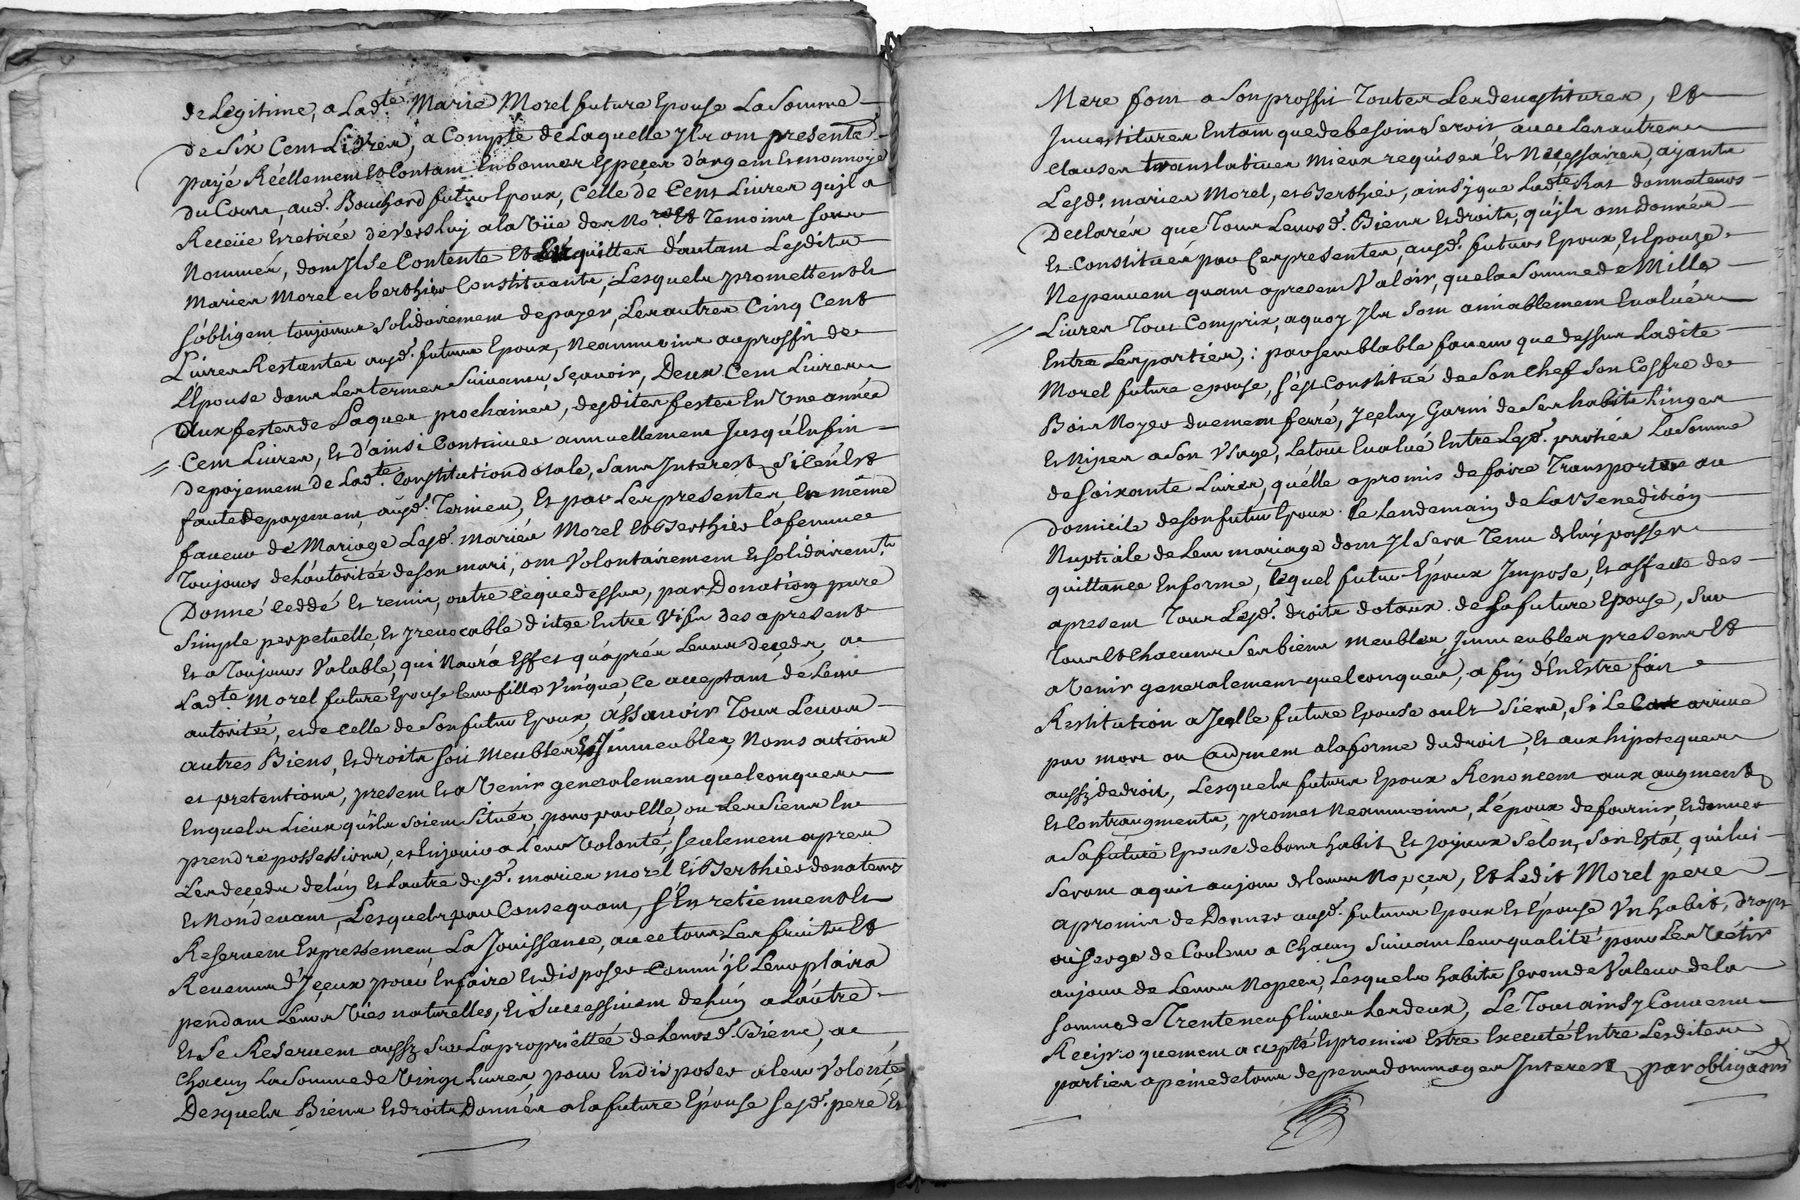 de Legitime, a Lad.te Marie Morel future Epouse La Somme
de Six Cent Livres, a Compte de Laquelle Ils ont presenté
payé Réellement et Contant En bonnes Espeçes d'argent et monnoye
du Cours, aud. Bouchard futur Epoux, Celle de Cent Livres qu'jl a
Reçeüe et retirée devers luy a la Vüe des No.res Et Temoins sous
Nommés, dont Jl Se Contente Et En quitter d'autant Lesdits
Maries Morel et berthier Constituants, Lesquels promettent et
s'obligent toujours solidairement de payer, Les autres Cinq Cent
Livres Restantes ausd. futurs Epoux, Neanmoins au proffit de
L'Epouse dans Les termes Suivans, Sçavoir, Deux Cent Livres
aux festes de Paques prochaines, desdites festes En Une année
Cent Livres, Et d'ainsi Continuer annuellement Jusqu'En fin
de payement de Lad.te Constitution dotale, Sans Interest, Si Ce n'Est
faute de payement, ausd. Termes, Et par Les presentes En même
faveur de Mariage Lesd. mariés Morel et Berthier la femme
Toujours de L'autorité de son mari, ont Volontairement et Solidairem.t
Donné Ceddé Et remis, outre Ce que dessus, par Donation pure
Simple perpetuelle, et Jrrevocable ditte Entre Vifs des apresent
Et a Toujours Valable, qui N'aura Effet qu'après Leurs deçeds, a
Lad.te Morel future Epouse leur fille Unique, Ce acceptant de Leur
autorité, et de Celle de Son futur Epoux, assavoir Tous Leurs
autres Biens, Et droits soit Meubles, Et Jmmeubles, Noms actions
et pretentions, present Et a Venir generalement quelconques
En quels Lieux qu'ils Soient Situés, pour par Elle, ou Les Siens En
prendre possessions, et En jouir a Leur Volonté, Seulement apres
Les deçeds de L'un Et L'autre desd. maries morel Et Berthier donateurs
Et Non devant, Lesquels par Consequant, S'En retiennent Et
Reservent Expressement La Jouissance, avec tous Les fruits Et
Revenus d'Jçeux pour En faire Et disposer Comm'jl Leur plaira
pendant Leurs Vies naturelles, Et Successivem.t de L'un a L'autre
Et Se Reservent aussy Sur La propriettée de Leursd. Biens, a
Chacun La Somme de Vingt Livres, pour En disposer a leur Volonté
Desquels Biens Et droits Donnés a La future Epouse Sesd. pere Et
Mere font a Son proffit Toutes Les devestitures, Et
Investitures En tant que de besoin Seroit avec Les autres
Clauses translatives mieux requises Et Neçessaires, ayants
Lesd. maries Morel, et Berthier, ainsy que Lad.te donnateurs
Declarés que Tous Leursd. Biens Et droits, qu'jls ont donnés
Et Constitués par Ces presentes, ausd. futurs Epoux, Et Epouze
Ne peuvent quant apresent Valoir, que La Somme de Mille
Livres Tous Compris, a quoy Jls Sont amiablement Evalués
Entre Les parties, : par Semblable faveur que dessus Ladite
Morel future epouse, s'est Constitué de Son Chef Son Coffre de
Bois Noyer duement ferré, Jceluy Garni de Ses habits Linges
Et Nipes a Son Usage, Le tout Evalué Entre Lesd. parties La Somme
de Soixante Livres, qu'elle a promis de faire Transporter au
domicile de Son futur Epoux le Lendemain de La Benediction
Nuptiale de Leur mariage dont Jl Sera Tenu de luy passer
quittance En forme, Lequel futur Epoux Impose, Et affecte des
apresent Tous Lesd. droits dotaux de Sa future Epouse, Sur
Tous Et Chacuns Ses biens meubles, Jmmeubles presens Et
a Venir generalement quelconques, a fin d'En Estre fait
Restitution a Jcelle future Epouse ou Es Siens, Si Le Cas arrive
par mort ou autrem.t a la forme du droit, Et aux hipoteques
aussy de droit, Lesquels futurs Epoux Renoncent aux augments
Et Contraugments, promet Neanmoins, L'époux de fournir, Et donner
a Sa future Epouse de bons habit Et Joyaux Selon, Son Estat, qui lui
Seront acquis au jour de Leurs Nopçes, Et Ledit Morel pere
a promis de Donner ausd. futurs Epoux et Epouse Un habit, drap
ou Serge de Couleur a Chacun Suivant Leur qualité pour Les Vêtir
au jour de Leurs Nopçes, Lesquels habits seront de Valeur de la
Somme de Trente neuf Livres Les deux, Le Tout ainsy Convenu
Reciproquement accepté Et promis Estre Executé Entre Lesdites
parties a peine de tous depens dommages Interest, par obligaons